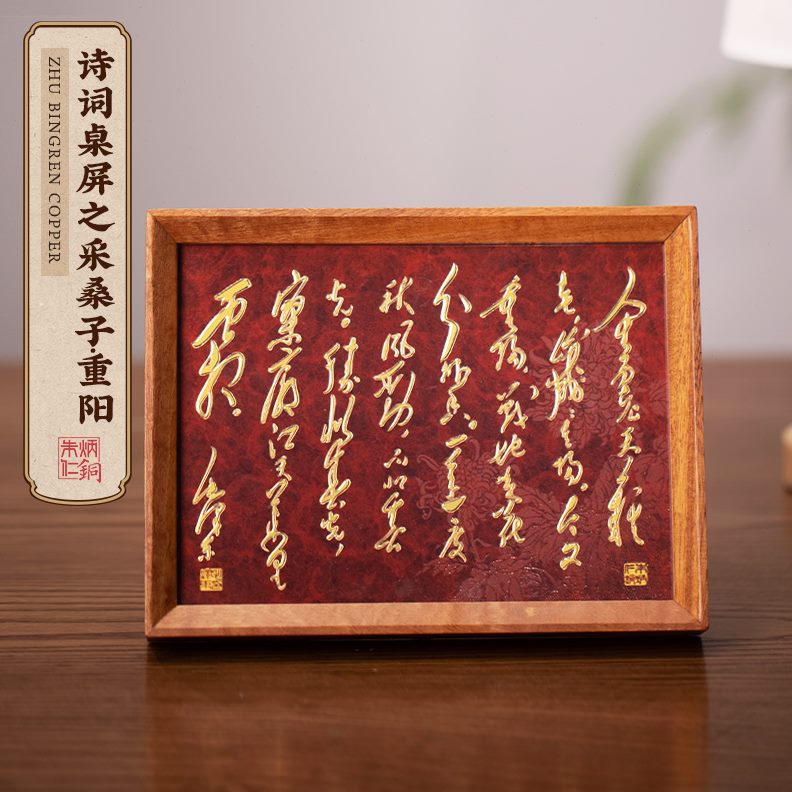 诗词桌屏之采桑子·重阳
ZHU BINGREN COPPER
朱炳仁銅
人生易老天難
老，歲歲重陽。今又
重陽，戰地黃花
分外香。一年一度
秋風勁，不似春
光。勝似春光，
寥廓江天萬里
霜。毛澤東